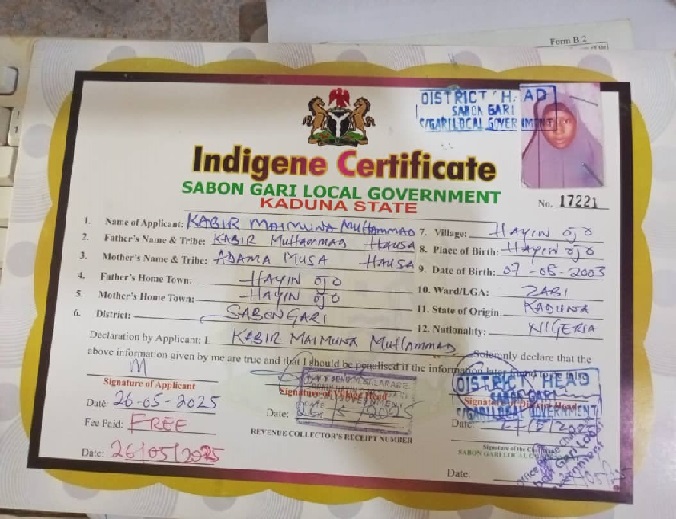 Form B.2
DISTRICT HEAD
SABON GARI
S/GARI LOCAL GOVERNMENT
Indigene Certificate
SABON GARI LOCAL GOVERNMENT
KADUNA STATE
No. 17221
1. Name of Applicant: KABIR MAIMUNA MUHAMMAD 7. Village: HAYIN OJO
2. Father's Name & Tribe: KABIR MUHAMMAD HAUSA 8. Place of Birth: HAYIN OJO
3. Mother's Name & Tribe: ADAMA MUSA HAUSA 9. Date of Birth: 07-05-2003
4. Father's Home Town: HAYIN OJO 10. Ward/LGA: ZABI
5. Mother's Home Town: HAYIN OJO 11. State of Origin KADUNA
6. District: SABON GARI 12. Nationality: NIGERIA
Declaration by Applicant: I KABIR MAIMUNA MUHAMMAD Solemnly declare that the
above information given by me are true and that I should be penalised if the information later
M
Signature of Applicant
Date: 26-05-2025
Fee Paid: FREE
Date: 26/05/2025
Signature of Village Head
Date:
REVENUE COLLECTOR'S RECEIPT NUMBER
DISTRICT HEAD
SABON GARI
S/GARI LOCAL GOVERNMENT
Date
Signature of the
SABON GARI LOCAL
Date